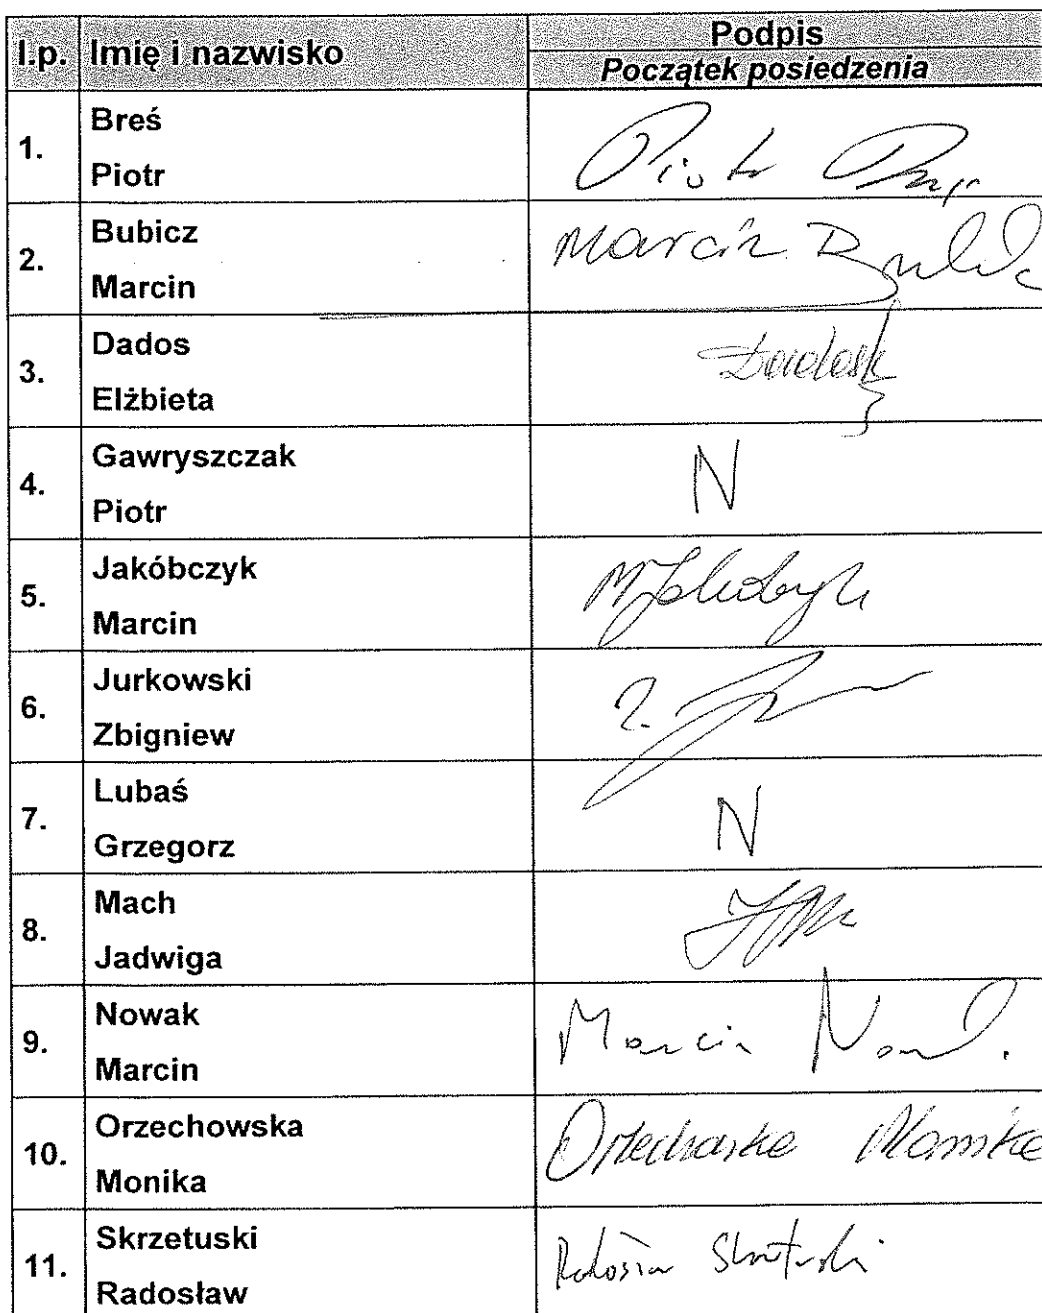 l.p. Imię i nazwisko Podpis
Początek posiedzenia
1. Breś
Piotr
Piotr Breś
2. Bubicz
Marcin
Marcin Bubicz
3. Dados
Elżbieta
Dados
4. Gawryszczak
Piotr
N
5. Jakóbczyk
Marcin
MJakóbczyk
6. Jurkowski
Zbigniew
Z.
7. Lubaś
Grzegorz
N
8. Mach
Jadwiga
9. Nowak
Marcin
Marcin Nowak
10. Orzechowska
Monika
Orzechowska Monika
11. Skrzetuski
Radosław
Radosław Skrzetuski